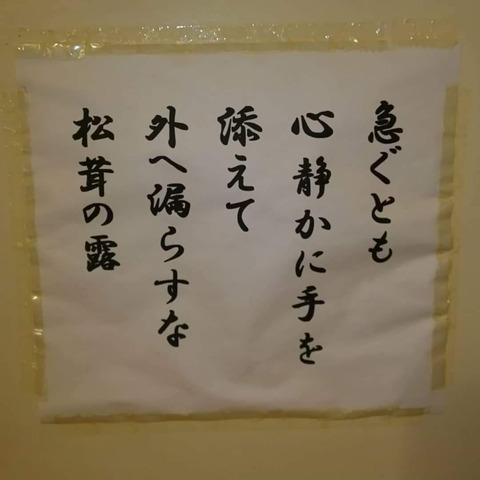 急ぐとも
心静かに手を
添えて
外へ漏らすな
松茸の露